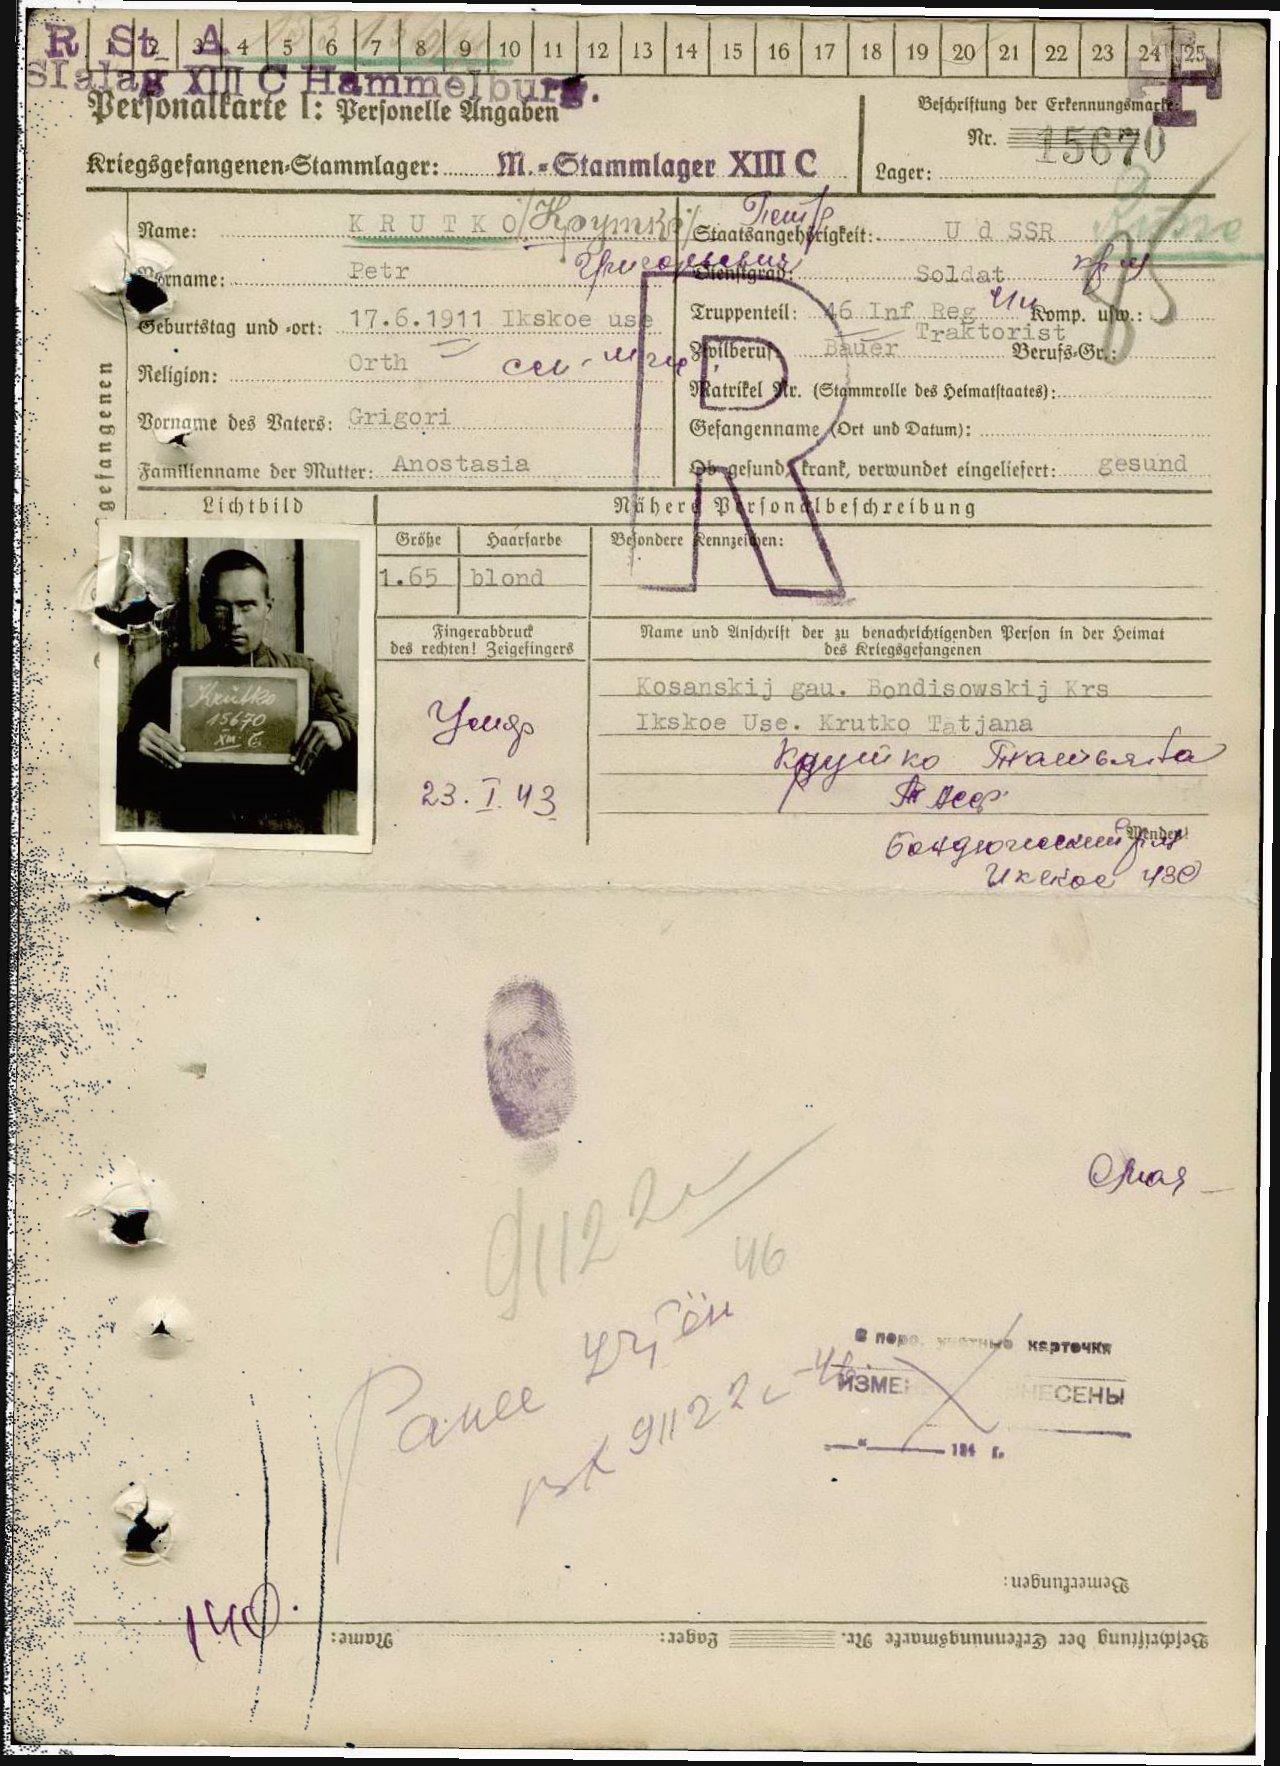 R St A
1 2 3 4 5 6 7 8 9 10 11 12 13 14 15 16 17 18 19 20 21 22 23 24 25
Stalag XIII C Hammelburg.
F
Personalkarte I: Personelle Angaben
Beschriftung der Erkennungsmarke:
Nr. 15670
Kriegsgefangenen-Stammlager: M.-Stammlager XIII C
Lager:
Name: KRUTKO /Крутко/
Петр
Staatsangehörigkeit: U d SSR
Vorname: Petr
Григорьевич
Dienstgrad: Soldat
кр-ц
Geburtstag und -ort: 17.6.1911 Ikskoe use
Truppenteil: 46 Inf Reg
Komp. usw.:
Traktorist
Zivilberuf: Bauer
Berufs-Gr.:
Religion: Orth
Matrikel Nr. (Stammrolle des Heimatstaates):
Vorname des Vaters: Grigori
Gefangenname (Ort und Datum):
Familienname der Mutter: Anostasia
Ob gesund, krank, verwundet eingeliefert: gesund
R
gefangenen
Lichtbild
Nähere Personalbeschreibung
Größe
Haarfarbe
Besondere Kennzeichen:
1.65
blond
Fingerabdruck
des rechten! Zeigefingers
Name und Anschrift der zu benachrichtigenden Person in der Heimat
des Kriegsgefangenen
Krutko
15670
XIII C
Kosanskij gau. Bondisowskij Krs
Ikskoe Use. Krutko Tatjana
Умер
23.I.43
Крутко Татьяна
Т АССР
Wenden!
Бондюжский р-н
Икское устье
91122 46
Ранее учтён
91122 46
В перс. учетные карточки
ИЗМЕНЕНИЯ ВНЕСЕНЫ
194 г.
140.
Bemerkungen:
Beschriftung der Erkennungsmarke Nr.
Lager:
Name: